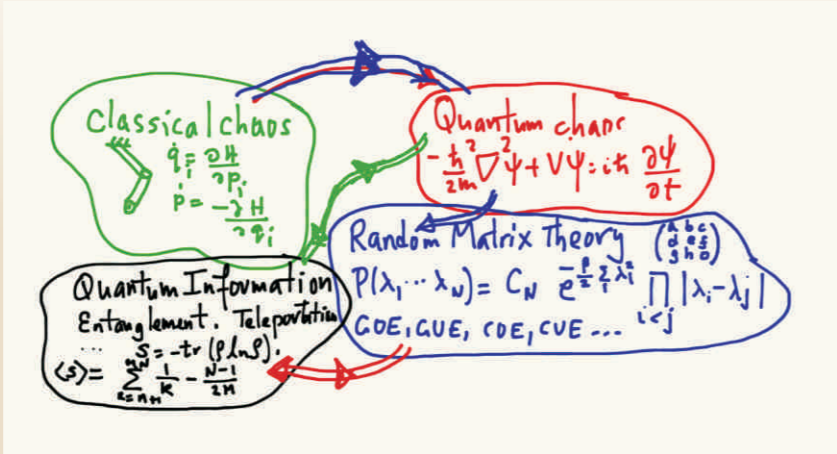 Classical chaos
q̇ᵢ = ∂H/∂pᵢ
ṗ = -∂H/∂qᵢ
Quantum chaos
-ħ²/2m ∇²ψ + Vψ = iħ ∂ψ/∂t
Random Matrix Theory (a b c
d e f
g h 0)
P(λ₁ ··· λ_N) = C_N e^(-β/2 Σᵢ λᵢ²) ∏_(i<j) |λᵢ - λⱼ|
GOE, GUE, COE, CUE ...
Quantum Information
Entanglement. Teleportation
... S = -tr (ρ ln ρ).
⟨S⟩ = Σ 1/K - N-1/2M